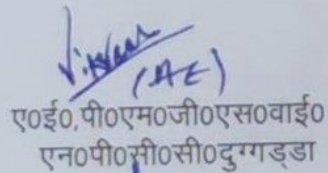 (AE)
ए०ई०,पी०एम०जी०एस०वाई०
एन०पी०सी०सी०दुग्गड्डा